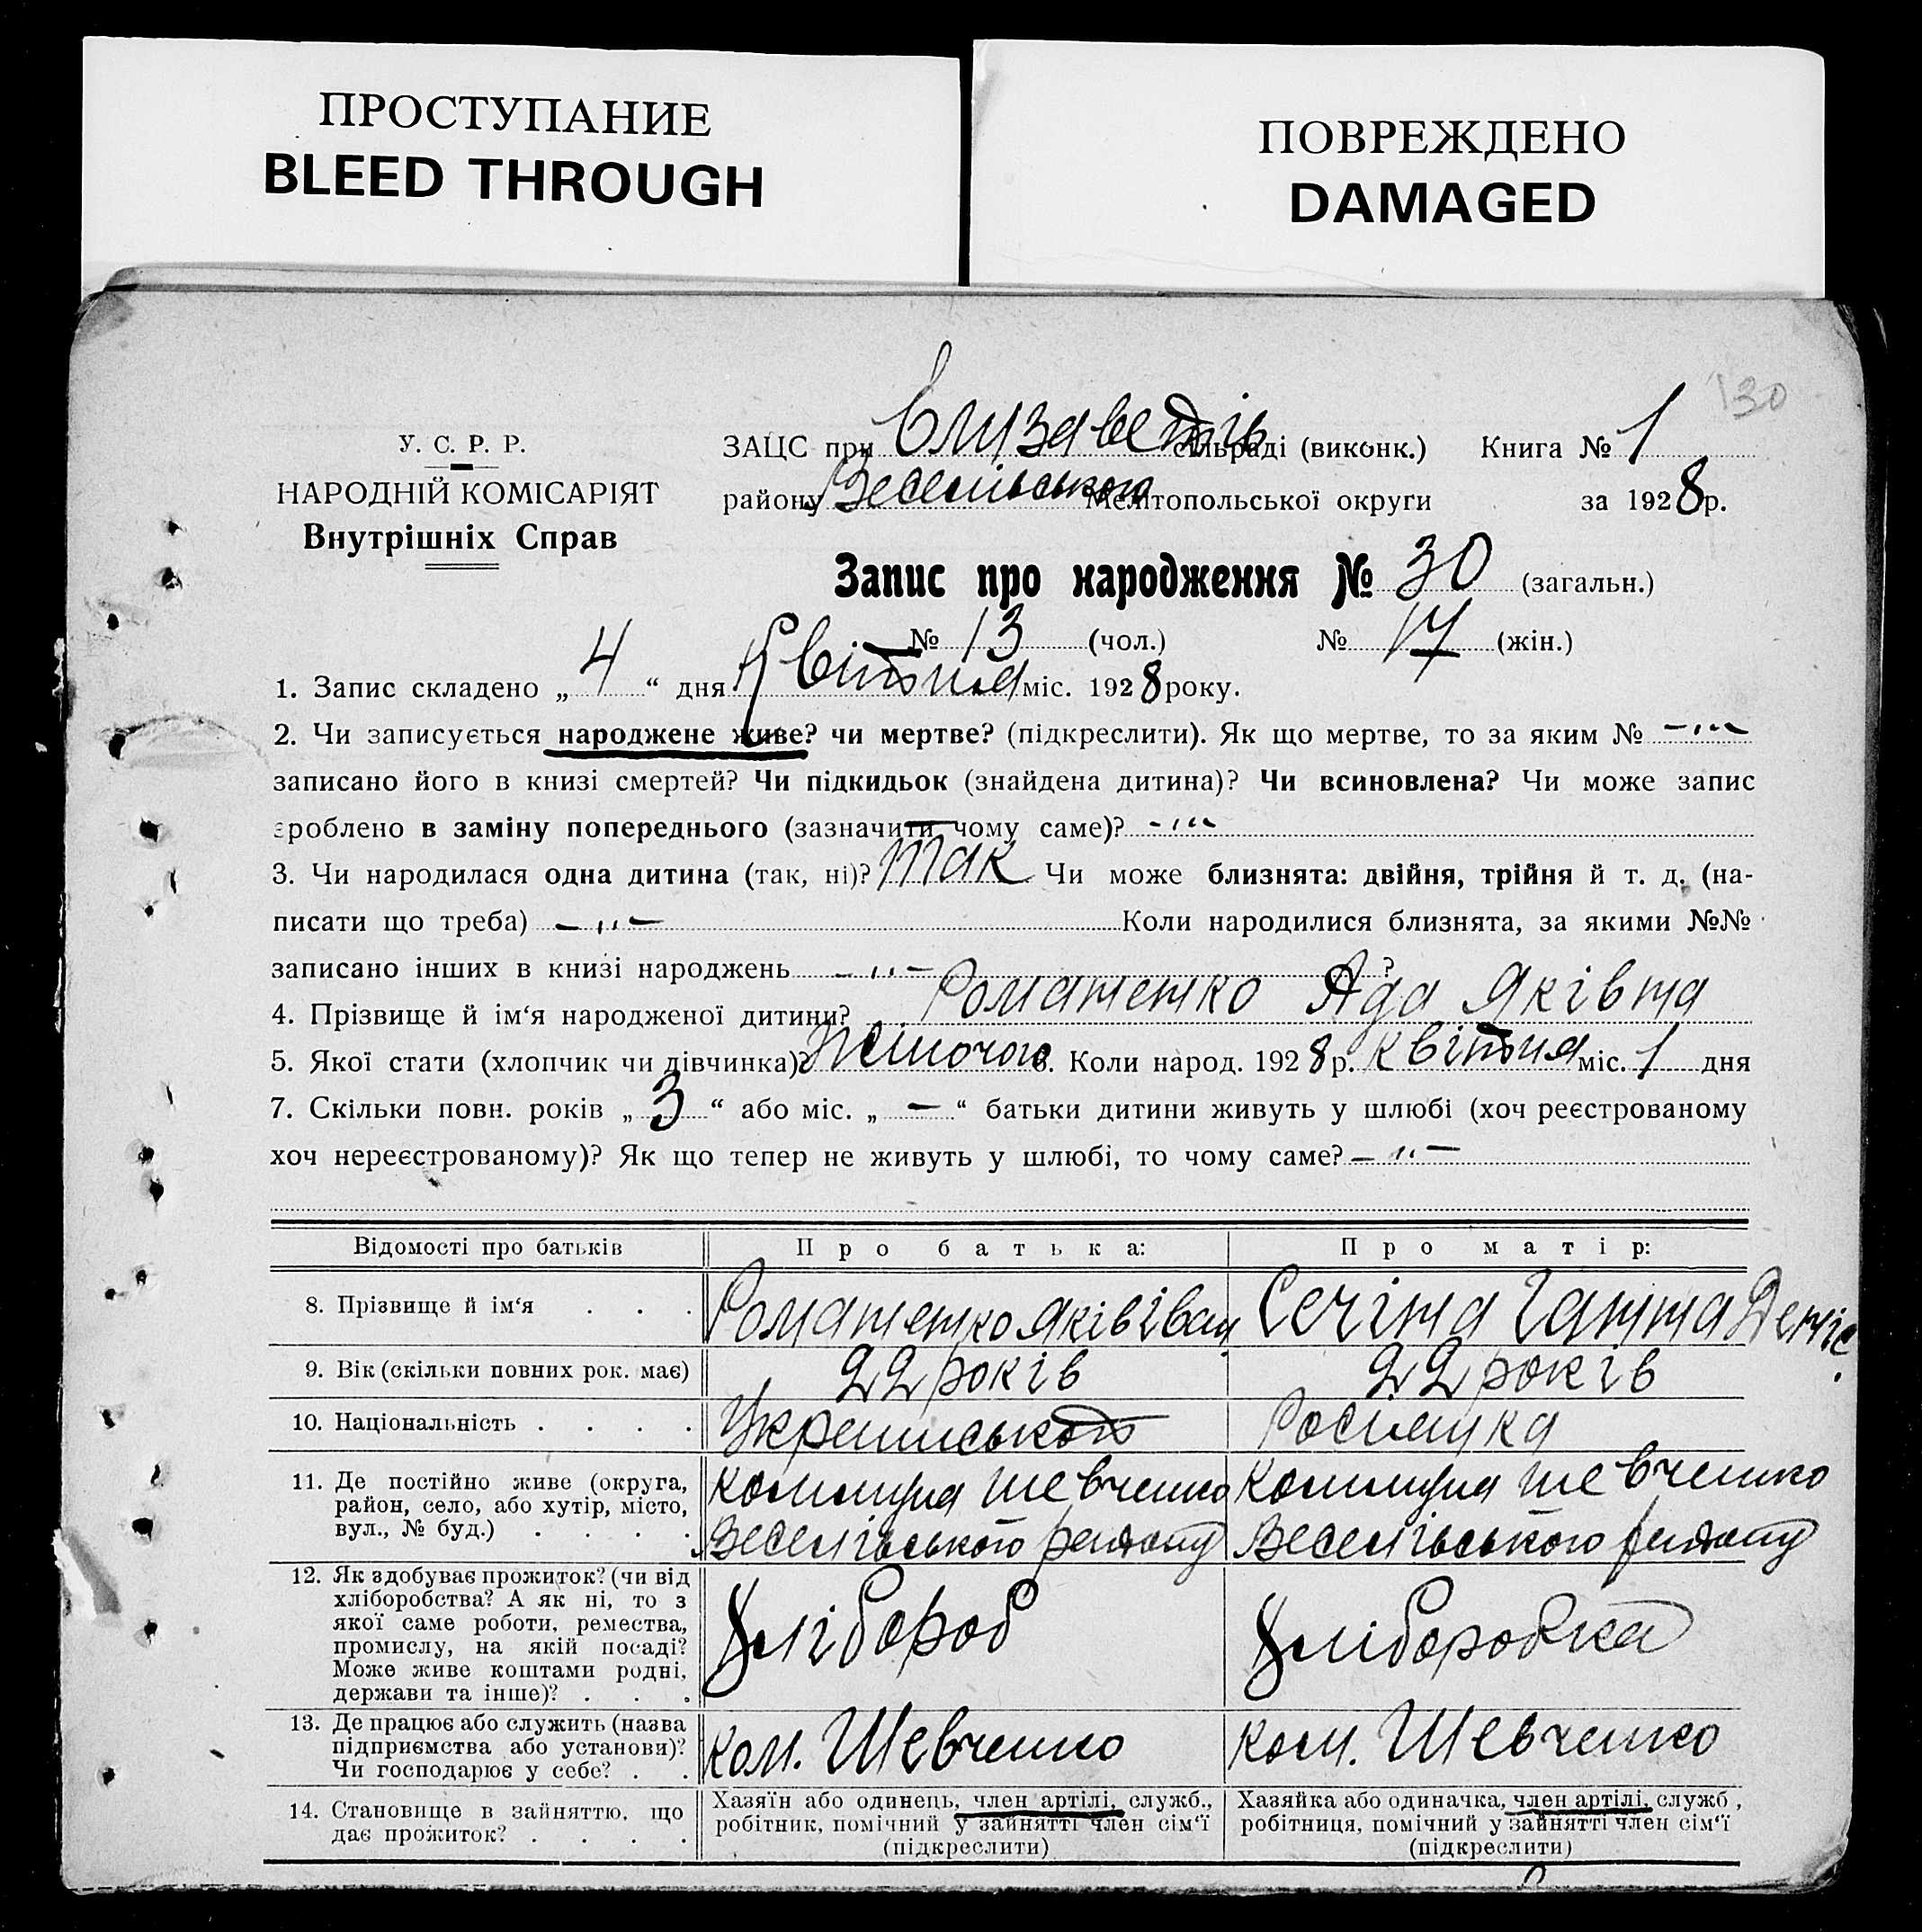 ПРОСТУПАНИЕ
BLEED THROUGH
ПОВРЕЖДЕНО
DAMAGED
130
У. С. Р. Р.
НАРОДНІЙ КОМІСАРІЯТ
Внутрішніх Справ
ЗАЦС при Єлизаветів сільраді (виконк.) Книга № 1
району Веселівського Мелітопольської округи за 1928 р.
Запис про народження № 30 (загальн.)
№ 13 (чол.) № 17 (жін.)
1. Запис складено „ 4 “ дня Квітня міс. 1928 року.
2. Чи записується народжене живе? чи мертве? (підкреслити). Як що мертве, то за яким № -"-
записано його в книзі смертей? Чи підкидьок (знайдена дитина)? Чи всиновлена? Чи може запис
зроблено в заміну попереднього (зазначити чому саме)? -"-
3. Чи народилася одна дитина (так, ні)? так Чи може близнята: двійня, трійня й т. д. (на-
писати що треба) -"- Коли народилися близнята, за якими №№
записано інших в книзі народжень -"- ?
4. Прізвище й ім‘я народженої дитини? Романенко Ада Яківна
5. Якої стати (хлопчик чи дівчинка)? Жіночого 6. Коли народ. 1928 р. квітня міс. 1 дня
7. Скільки повн. років „ 3 “ або міс. „ — “ батьки дитини живуть у шлюбі (хоч реєстрованому
хоч нереєстрованому)? Як що тепер не живуть у шлюбі, то чому саме? -"-
Відомості про батьків Про батька: Про матір:
8. Прізвище й ім‘я . . . Романенко Яків Іван Сечіна Ганна Деніс.
9. Вік (скільки повних рок. має) 22 років 22 років
10. Національність . . . . Росіянка
11. Де постійно живе (округа, район, село, або хутір, місто, вул., № буд.) . . . .
коммуна Шевченко
Веселівського району
коммуна Шевченко
Веселівського району
12. Як здобуває прожиток? (чи від
хліборобства? А як ні, то з
якої саме роботи, ремества,
промислу, на якій посаді?
Може живе коштами родні,
держави та інше)? . . .
Хлібороб
Хліборобка
13. Де працює або служить (назва
підприємства або установи)?
Чи господарює у себе? . .
ком. Шевченко
ком. Шевченко
14. Становище в зайняттю, що
дає прожиток? . . . .
Хазяїн або одинець, член артілі, служб.,
робітник, помічний у зайнятті член сім‘ї
(підкреслити)
Хазяйка або одиначка, член артілі, служб.,
робітниця, помічний у зайнятті член сім‘ї
(підкреслити)